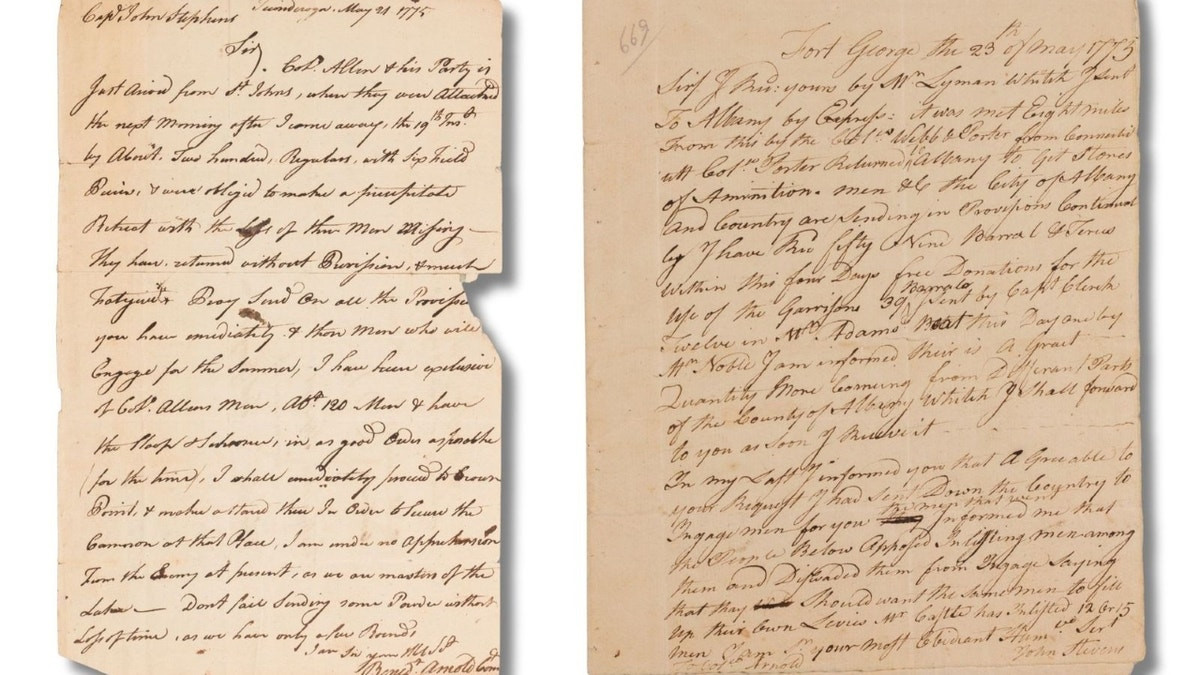 Capt John Stephens Ticonderoga May 21 1775
Sir,
Col. Allen & his Party is
Just Arived from St Johns, where they were Attacked
the next Morning after I came away, the 19th Inst
by About Two hundred, Regulars, with Six Field
Peices, & were obliged to make a precipitate
Retreat with the loss of three Men Missing —
they have returned without Provision, & much
Fatigued. Pray Send On all the Provision
you have imediately & those Men who will
Engage for the Summer, I have here exclusive
of Col. Allens Men, Abt 120 Men & have
the Sloop & Schooner, in as good Order as possable
(for the time), I shall imediately proceed to Crown
Point, & make a stand there In Order to Secure the
Cannon at that Place, I am under no Apprehension
From the Enemy at present, as we are masters of the
Lake — Don't fail Sending some Powder without
Loss of time, as we have only a few Rounds
I am Sir your
Bened. Arnold
669
Fort George the 23th of may 1775
Sir I Recd: yours by Mr Lyman Whitch I Sent
To Albany by Express: it was met Eight miles
From this by the Colns Webb & Porter from Connectic
utt Coln Porter Returned Albany to Get Stores
of Amunition men &c the City of Albany
and Country are Sending in Provisions Continual
ly I have Recd fifty Nine Barrals & Terces
Within this four Days free Donations for the
use of the Garrisons 39 Barrals Sent by Capt
Twelve in Mr Adams Boat this Day and by
Mr Noble I am informed their is A Graet
Quantity More Comeing from Different Parts
of the County of Albany Whitch I Shall forward
to you as Soon I Recive it
In my Last I informed you that A Greeable to
your Request I had Sent Down the Country to
Ingage men for you the men that went Informed me that
the People Below Apposed Inlisting men among
them and Diswaded them from Ingage Saying
that thay Should want the Same men to fill
up their Own Levies Mr Castle has Inlisted 12 or 15
men I am Sr your most Obediant Hum ve Sert
To Coln Arnold John Stevens